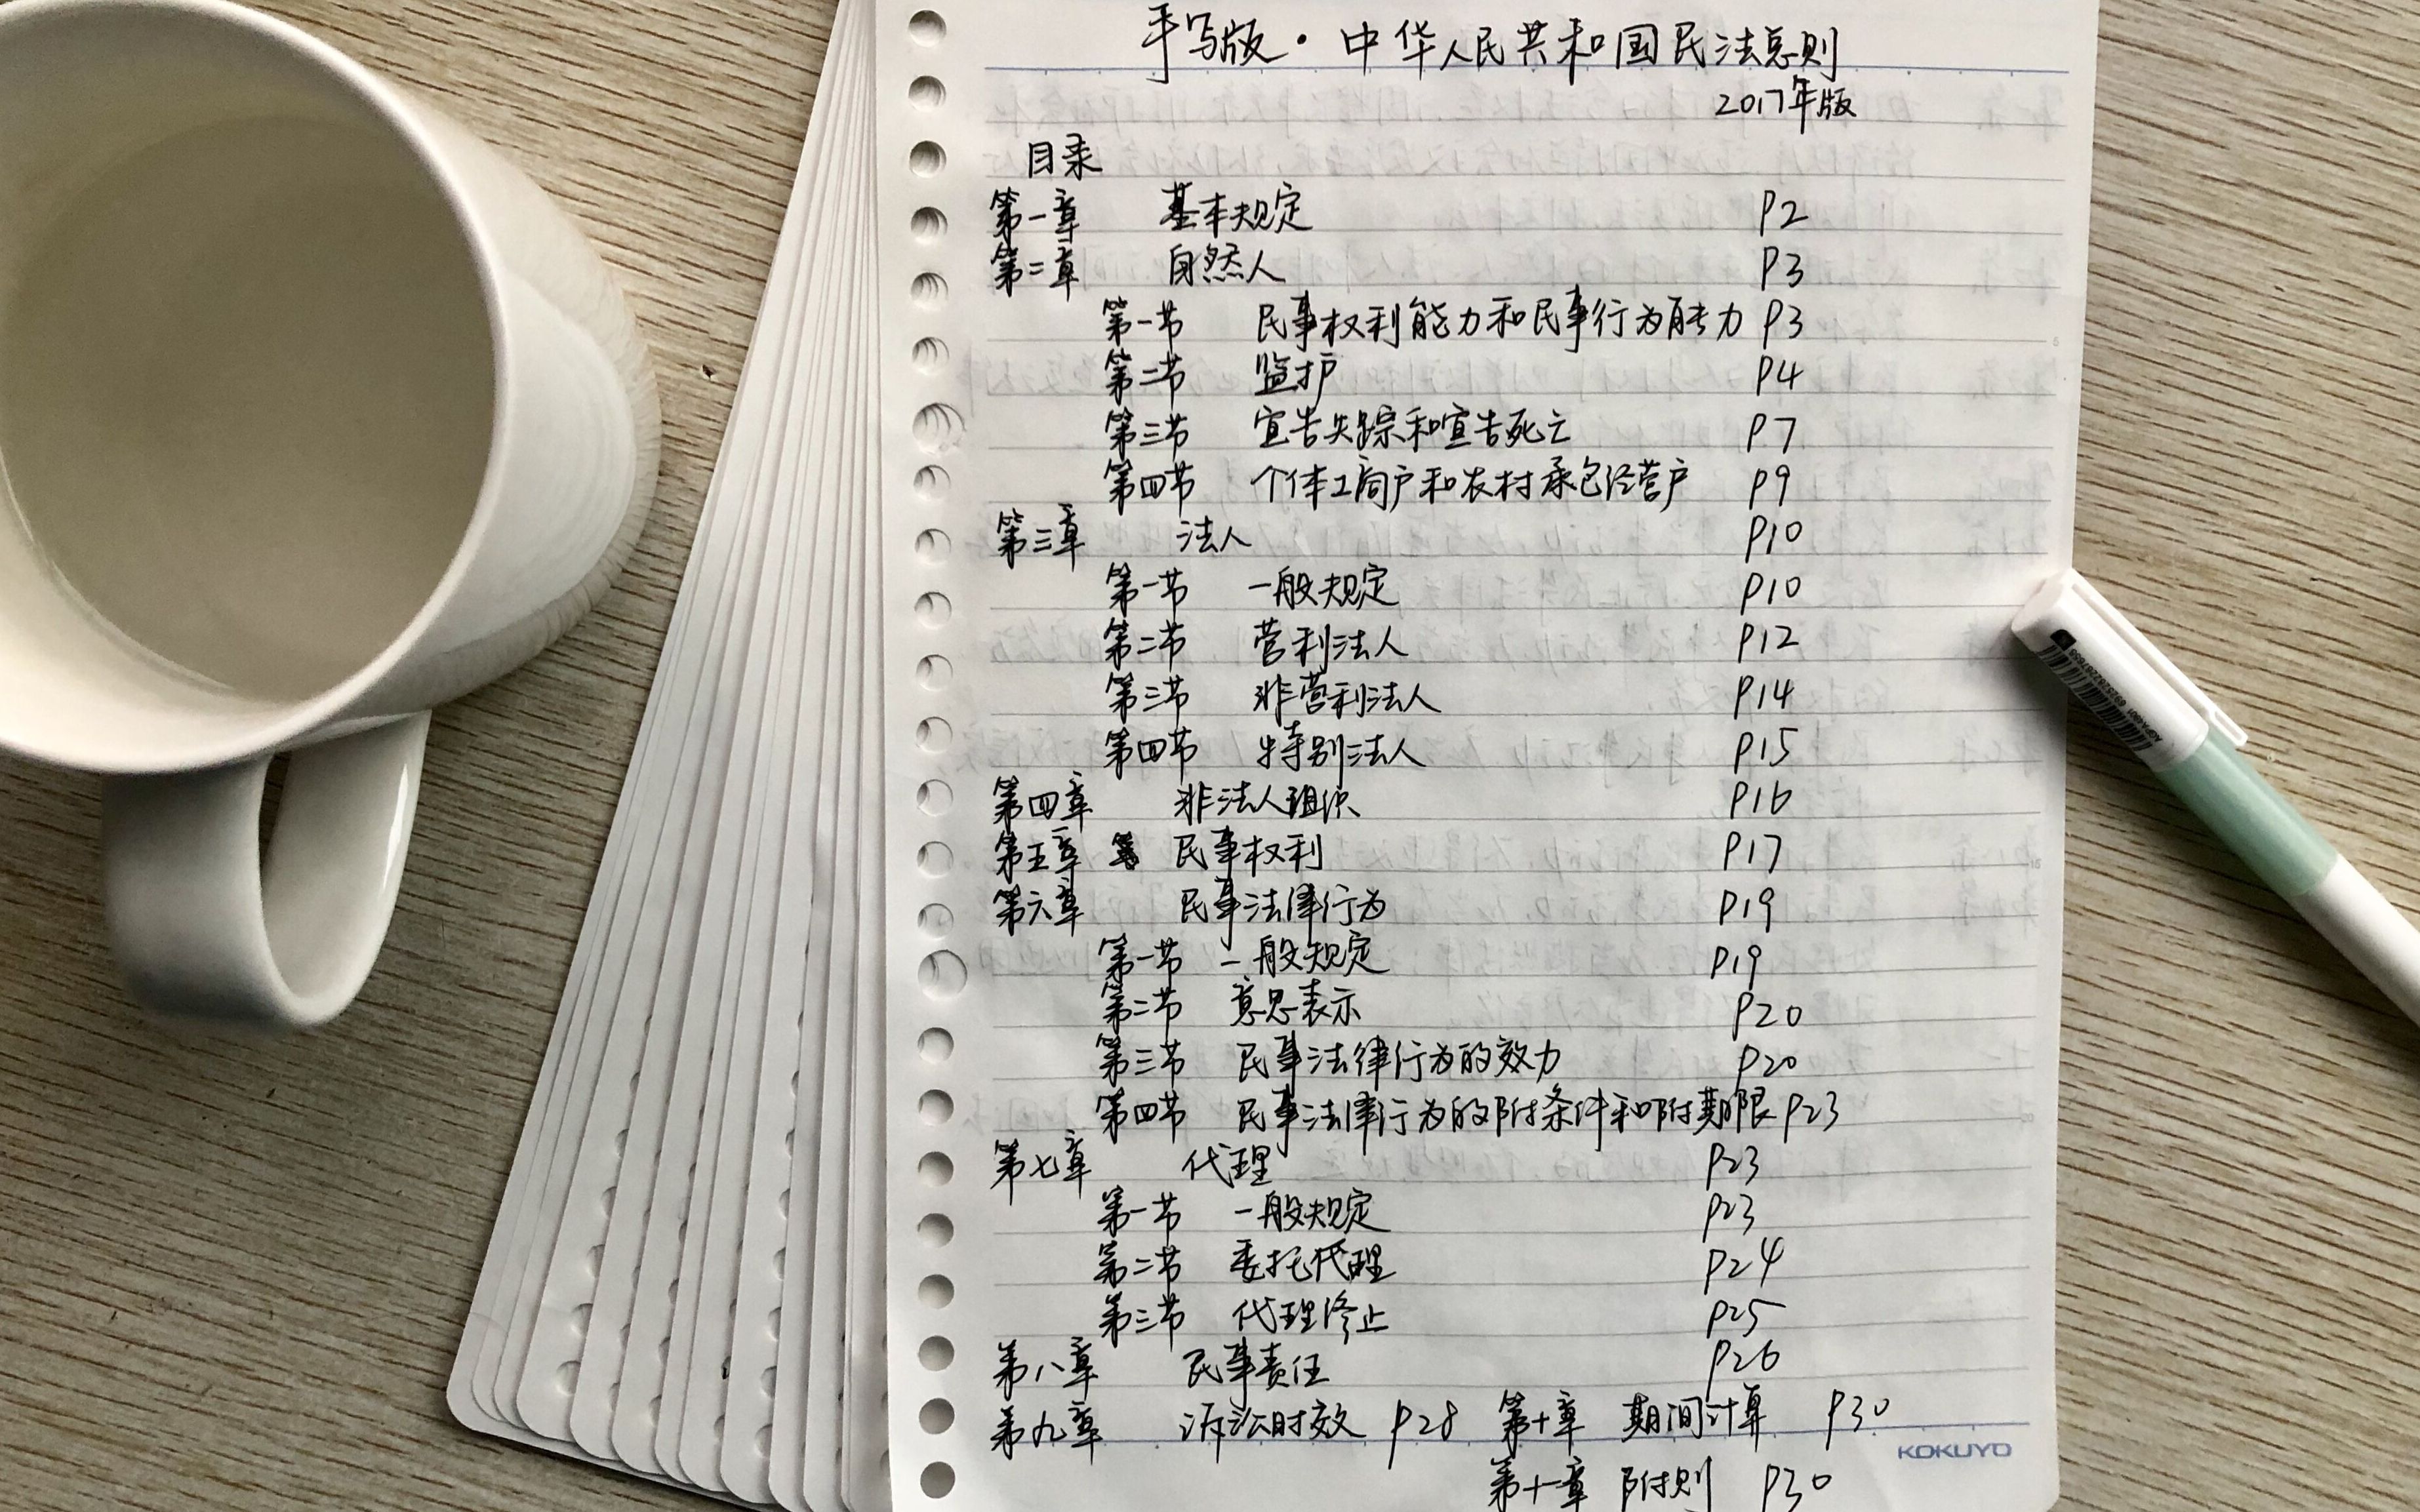 手写版·中华人民共和国民法总则
2017年版
目录
第一章 基本规定 P2
第二章 自然人 P3
第一节 民事权利能力和民事行为能力 P3
第二节 监护 P4
第三节 宣告失踪和宣告死亡 P7
第四节 个体工商户和农村承包经营户 P9
第三章 法人 P10
第一节 一般规定 P10
第二节 营利法人 P12
第三节 非营利法人 P14
第四节 特别法人 P15
第四章 非法人组织 P16
第五章 民事权利 P17
第六章 民事法律行为 P19
第一节 一般规定 P19
第二节 意思表示 P20
第三节 民事法律行为的效力 P20
第四节 民事法律行为的附条件和附期限 P23
第七章 代理 P23
第一节 一般规定 P23
第二节 委托代理 P24
第三节 代理终止 P25
第八章 民事责任 P26
第九章 诉讼时效 P28 第十章 期间计算 P30
KOKUYO
第十一章 附则 P30